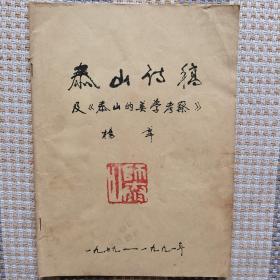 泰山诗稿
及《泰山的美学考察》
杨辛
一九七九——一九九一年